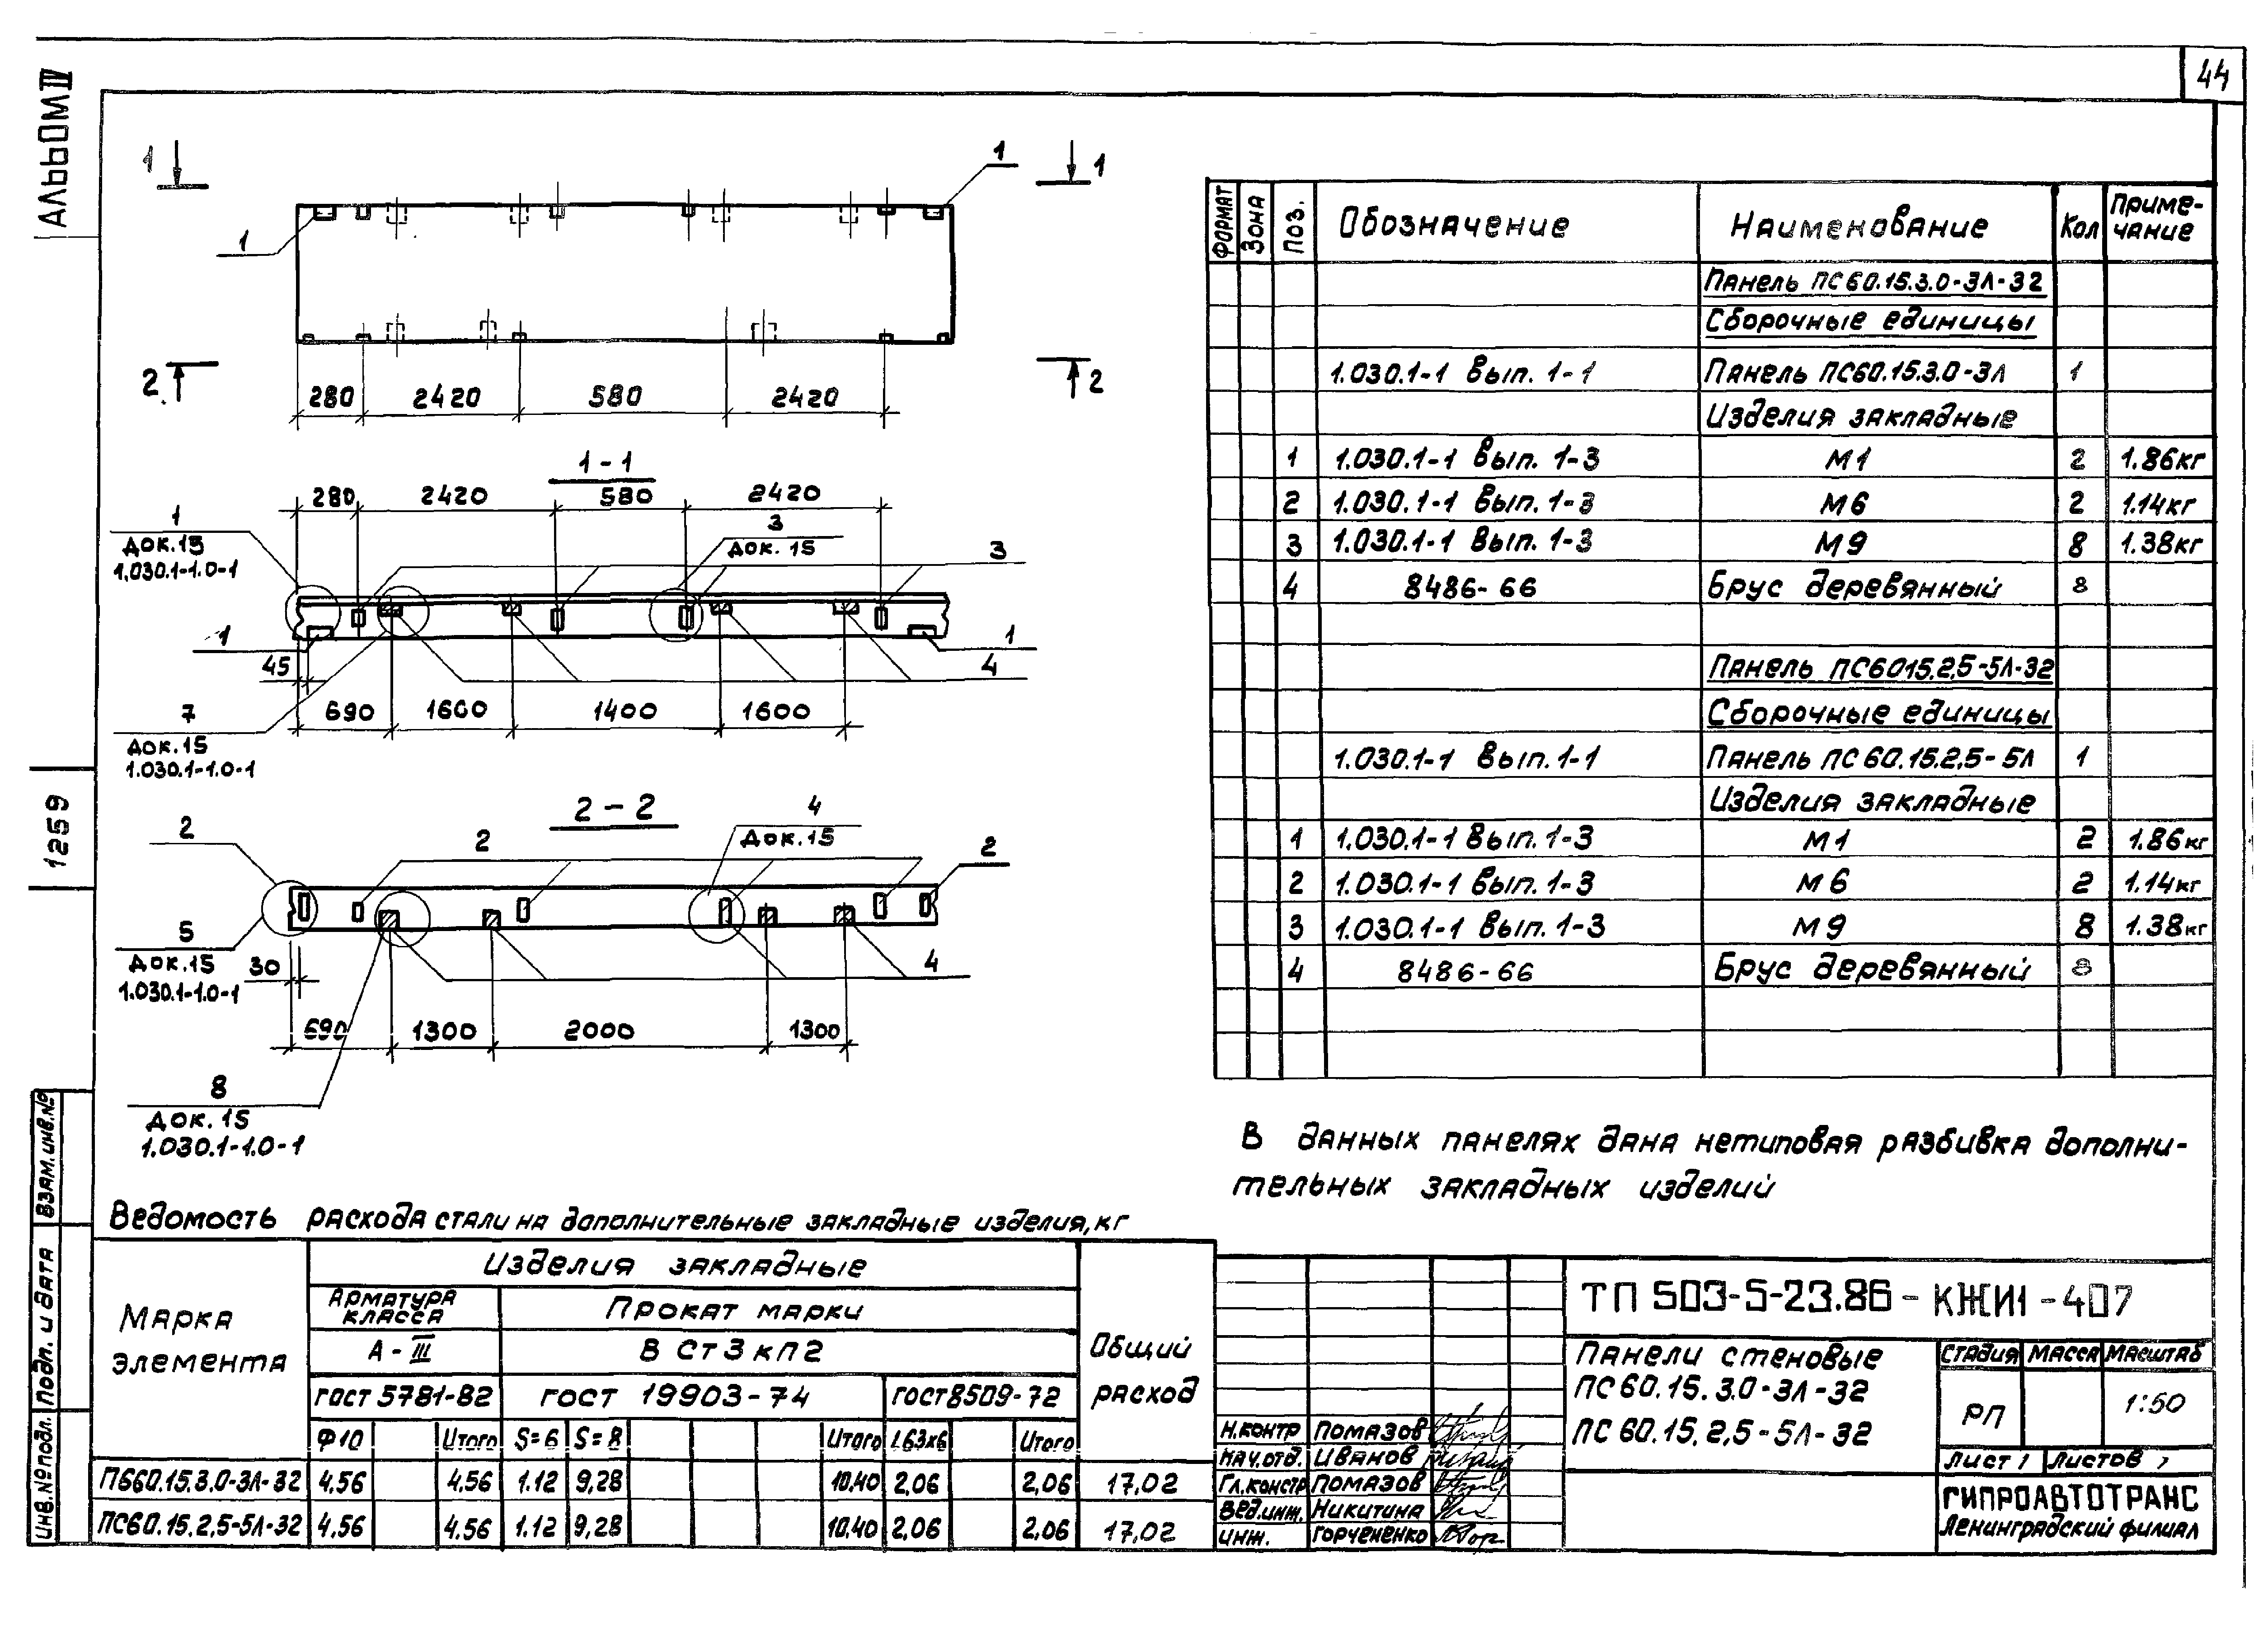 44
АЛЬБОМ IV
1 1
1
1
2 2
280 2420 580 2420
1-1
280 2420 580 2420
1
док.15
1.030.1-1.0-1
3
док. 15
3
1 1
45 4
690 1600 1400 1600
7
док.15
1.030.1-1.0-1
2-2
2 2 4
док.15
2
5
док.15
1.030.1-1.0-1
30
4
690 1300 2000 1300
8
док.15
1.030.1-1.0-1
1259
Взам.инв.№
Подп. и дата
Инв.№подл.
Формат Зона Поз. Обозначение Наименование Кол Приме-
чание
Панель ПС60.15.3.0-3Л-32
Сборочные единицы
1.030.1-1 Вып. 1-1 Панель ПС60.15.3.0-3Л 1
Изделия закладные
1 1.030.1-1 Вып. 1-3 М1 2 1.86кг
2 1.030.1-1 Вып. 1-3 М6 2 1.14кг
3 1.030.1-1 Вып. 1-3 М9 8 1.38кг
4 8486-66 Брус деревянный 8
Панель ПС6015.2,5-5Л-32
Сборочные единицы
1.030.1-1 Вып.1-1 Панель ПС 60.15.2,5-5Л 1
Изделия закладные
1 1.030.1-1 Вып. 1-3 М1 2 1.86кг
2 1.030.1-1 Вып. 1-3 М6 2 1.14кг
3 1.030.1-1 Вып. 1-3 М9 8 1.38кг
4 8486-66 Брус деревянный 8
В данных панелях дана нетиповая разбивка дополни-
тельных закладных изделий
Ведомость расхода стали на дополнительные закладные изделия,кг
Марка
элемента
Изделия закладные
Общий
расход
Арматура
класса
Прокат марки
А-III В Ст3кп2
гост 5781-82 гост 19903-74 гост8509-72
Ф10 Итого S=6 S=8 Итого L63х6 Итого
ПБ60.15.3.0-3Л-32 4,56 4,56 1.12 9,28 10.40 2,06 2,06 17,02
ПС60.15.2,5-5Л-32 4,56 4,56 1.12 9,28 10.40 2,06 2,06 17,02
ТП 503-5-23.86-КЖИ1-407
Панели стеновые
ПС60.15.3.0-3Л-32
ПС 60.15.2,5-5Л-32
Стадия Масса Масштаб
РП 1:50
Лист 1 Листов 1
ГИПРОАВТОТРАНС
Ленинградский филиал
Н.контр Помазов
Нач.отд. Иванов
Гл.констр Помазов
Вед.инж. Никитина
Инж. Горчененко